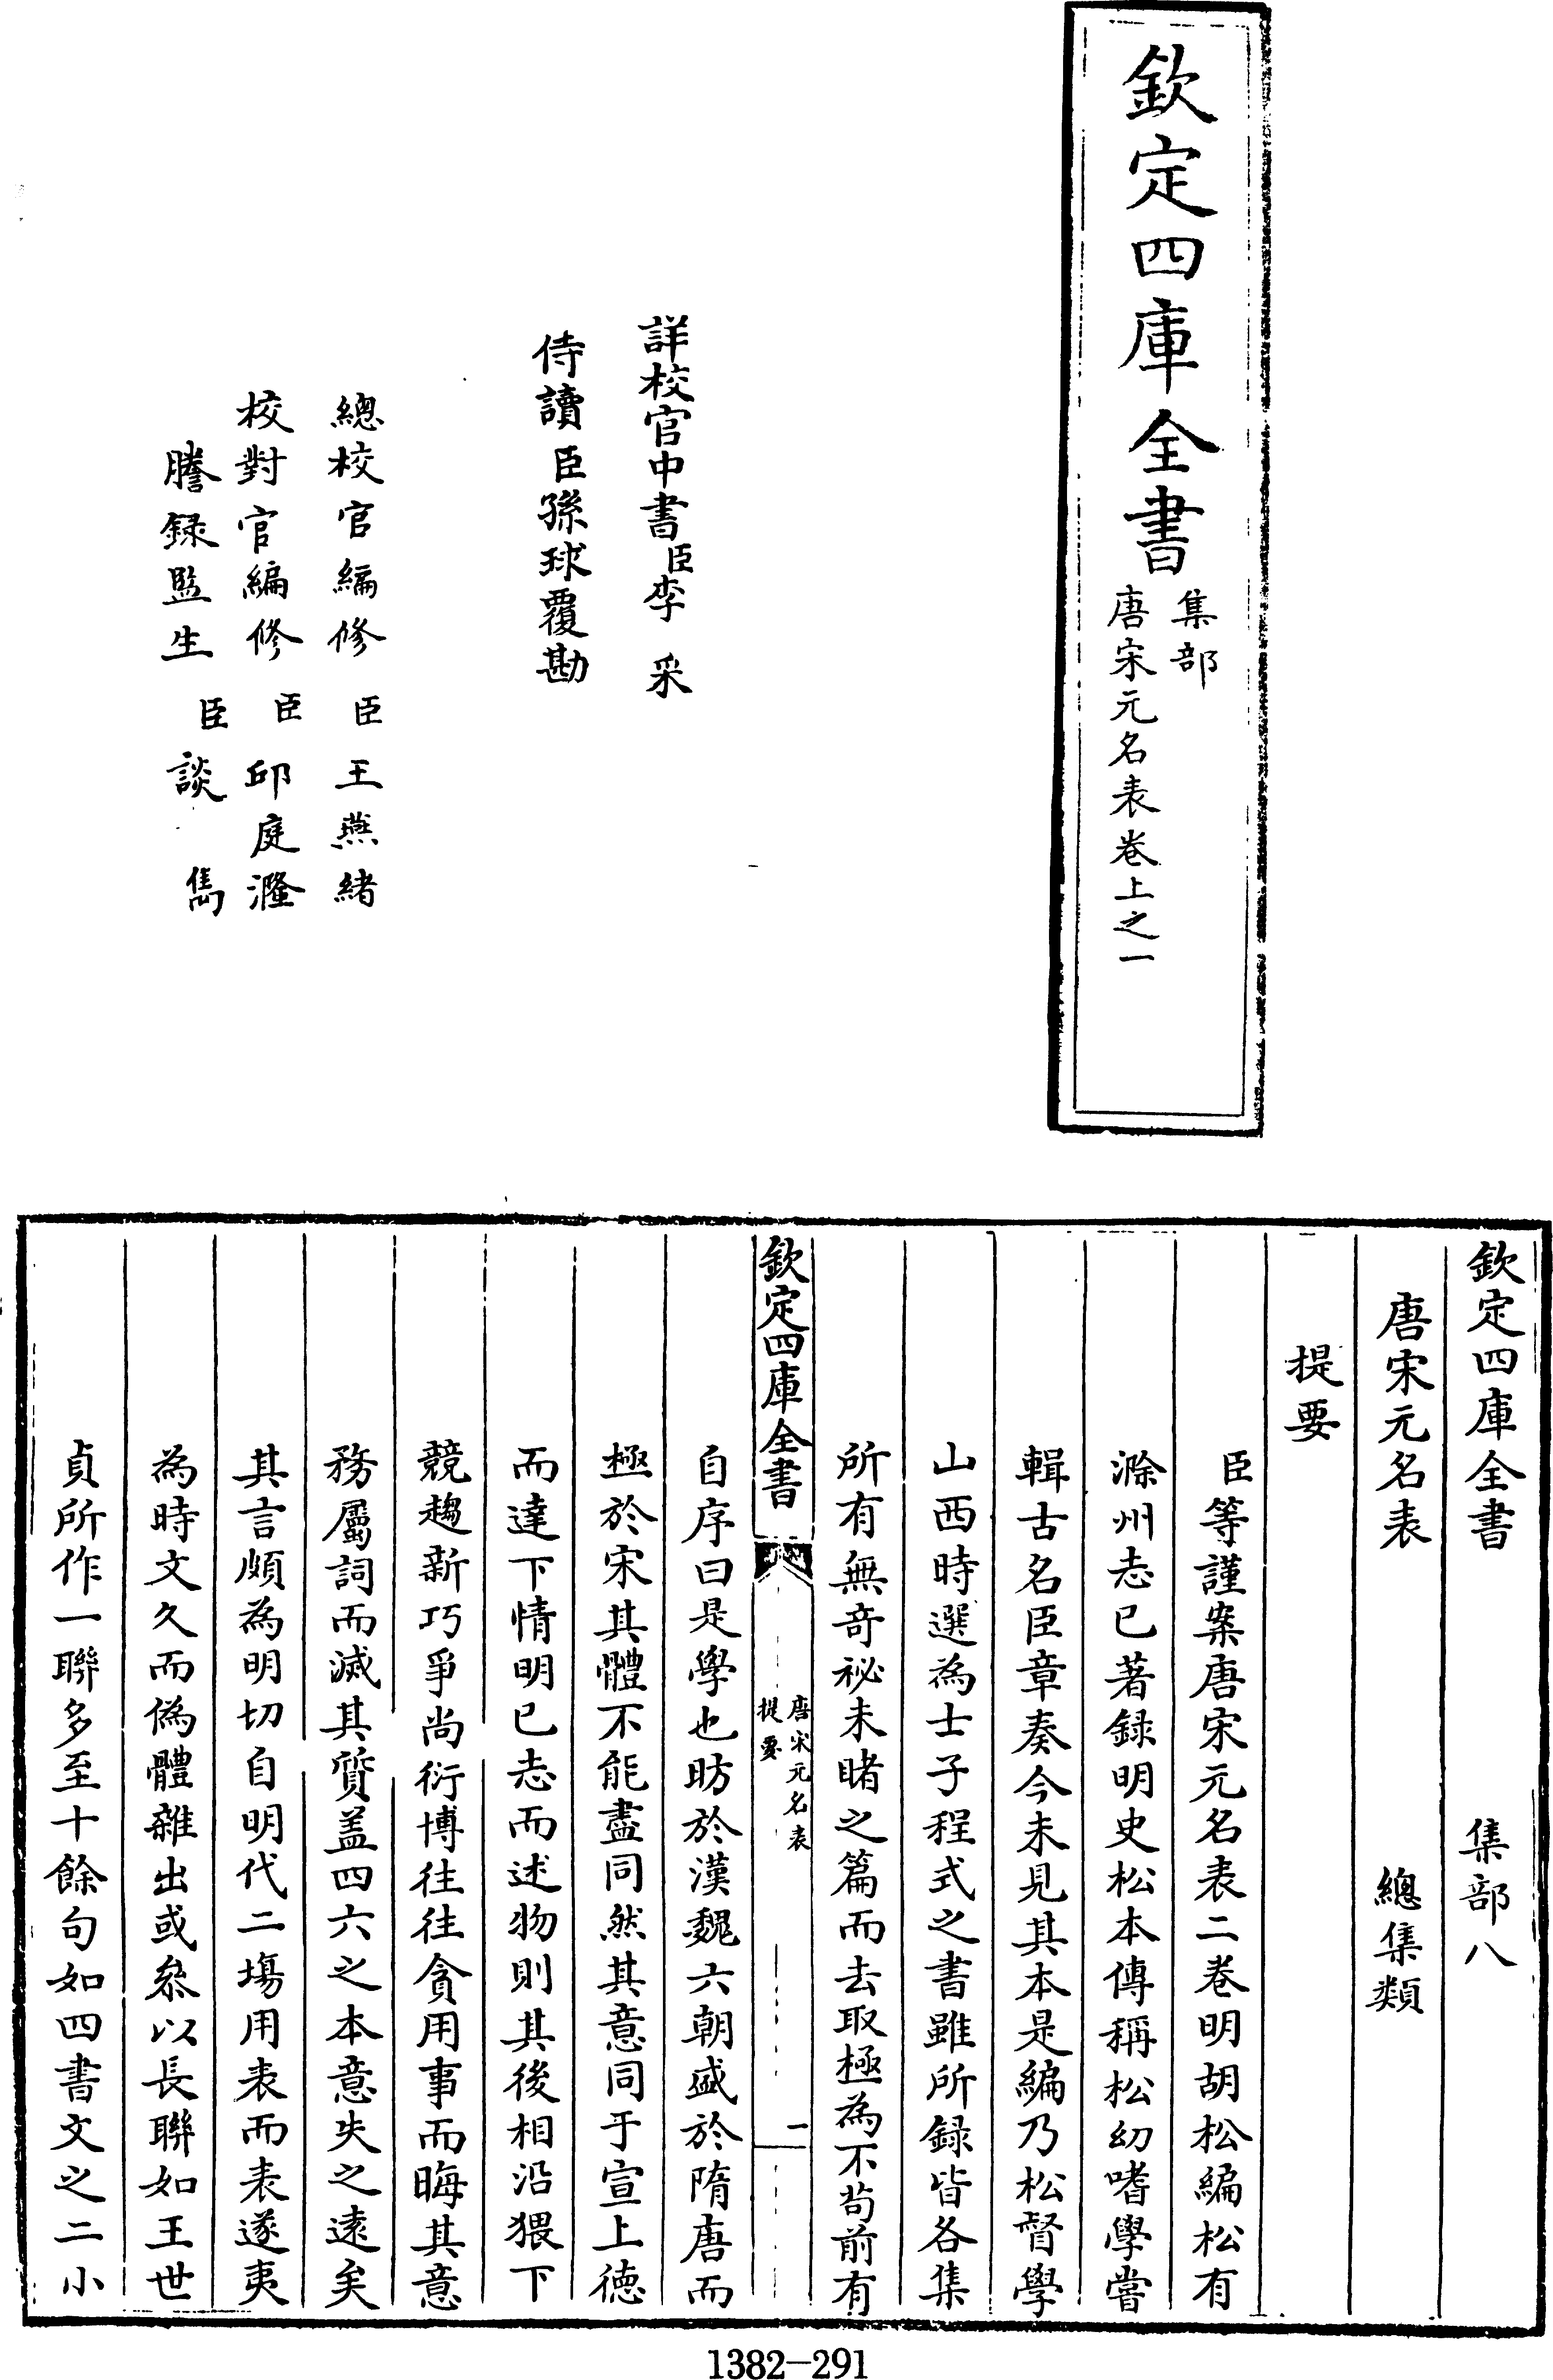 欽定四庫全書
集部
唐宋元名表卷上之一
詳校官中書臣李采
侍讀臣孫球覆勘
總校官編修臣王燕緒
校對官編修臣邱庭漋
謄録監生臣談雋
欽定四庫全書 集部八
唐宋元名表 總集類
提要
臣等謹案唐宋元名表二卷明胡松編松有
滁州志已著録明史松本傳稱松幼嗜學嘗
輯古名臣章奏今未見其本是編乃松督學
山西時選為士子程式之書雖所録皆各集
所有無奇祕未睹之篇而去取極為不苟前有
欽定四庫全書
唐宋元名表
提要
一
自序曰是學也昉於漢魏六朝盛於隋唐而
極於宋其體不能盡同然其意同于宣上徳
而達下情明已志而述物則其後相沿猥下
競趨新巧爭尚衍博往往貪用事而晦其意
務屬詞而滅其質盖四六之本意失之遠矣
其言頗為明切自明代二塲用表而表遂夷
為時文久而僞體雜出或叅以長聯如王世
貞所作一聯多至十餘句如四書文之二小
1382-291